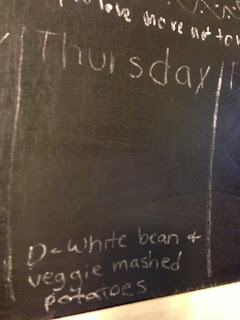 love more not to w
Thursday
D-White bean +
veggie mashed
potatoes